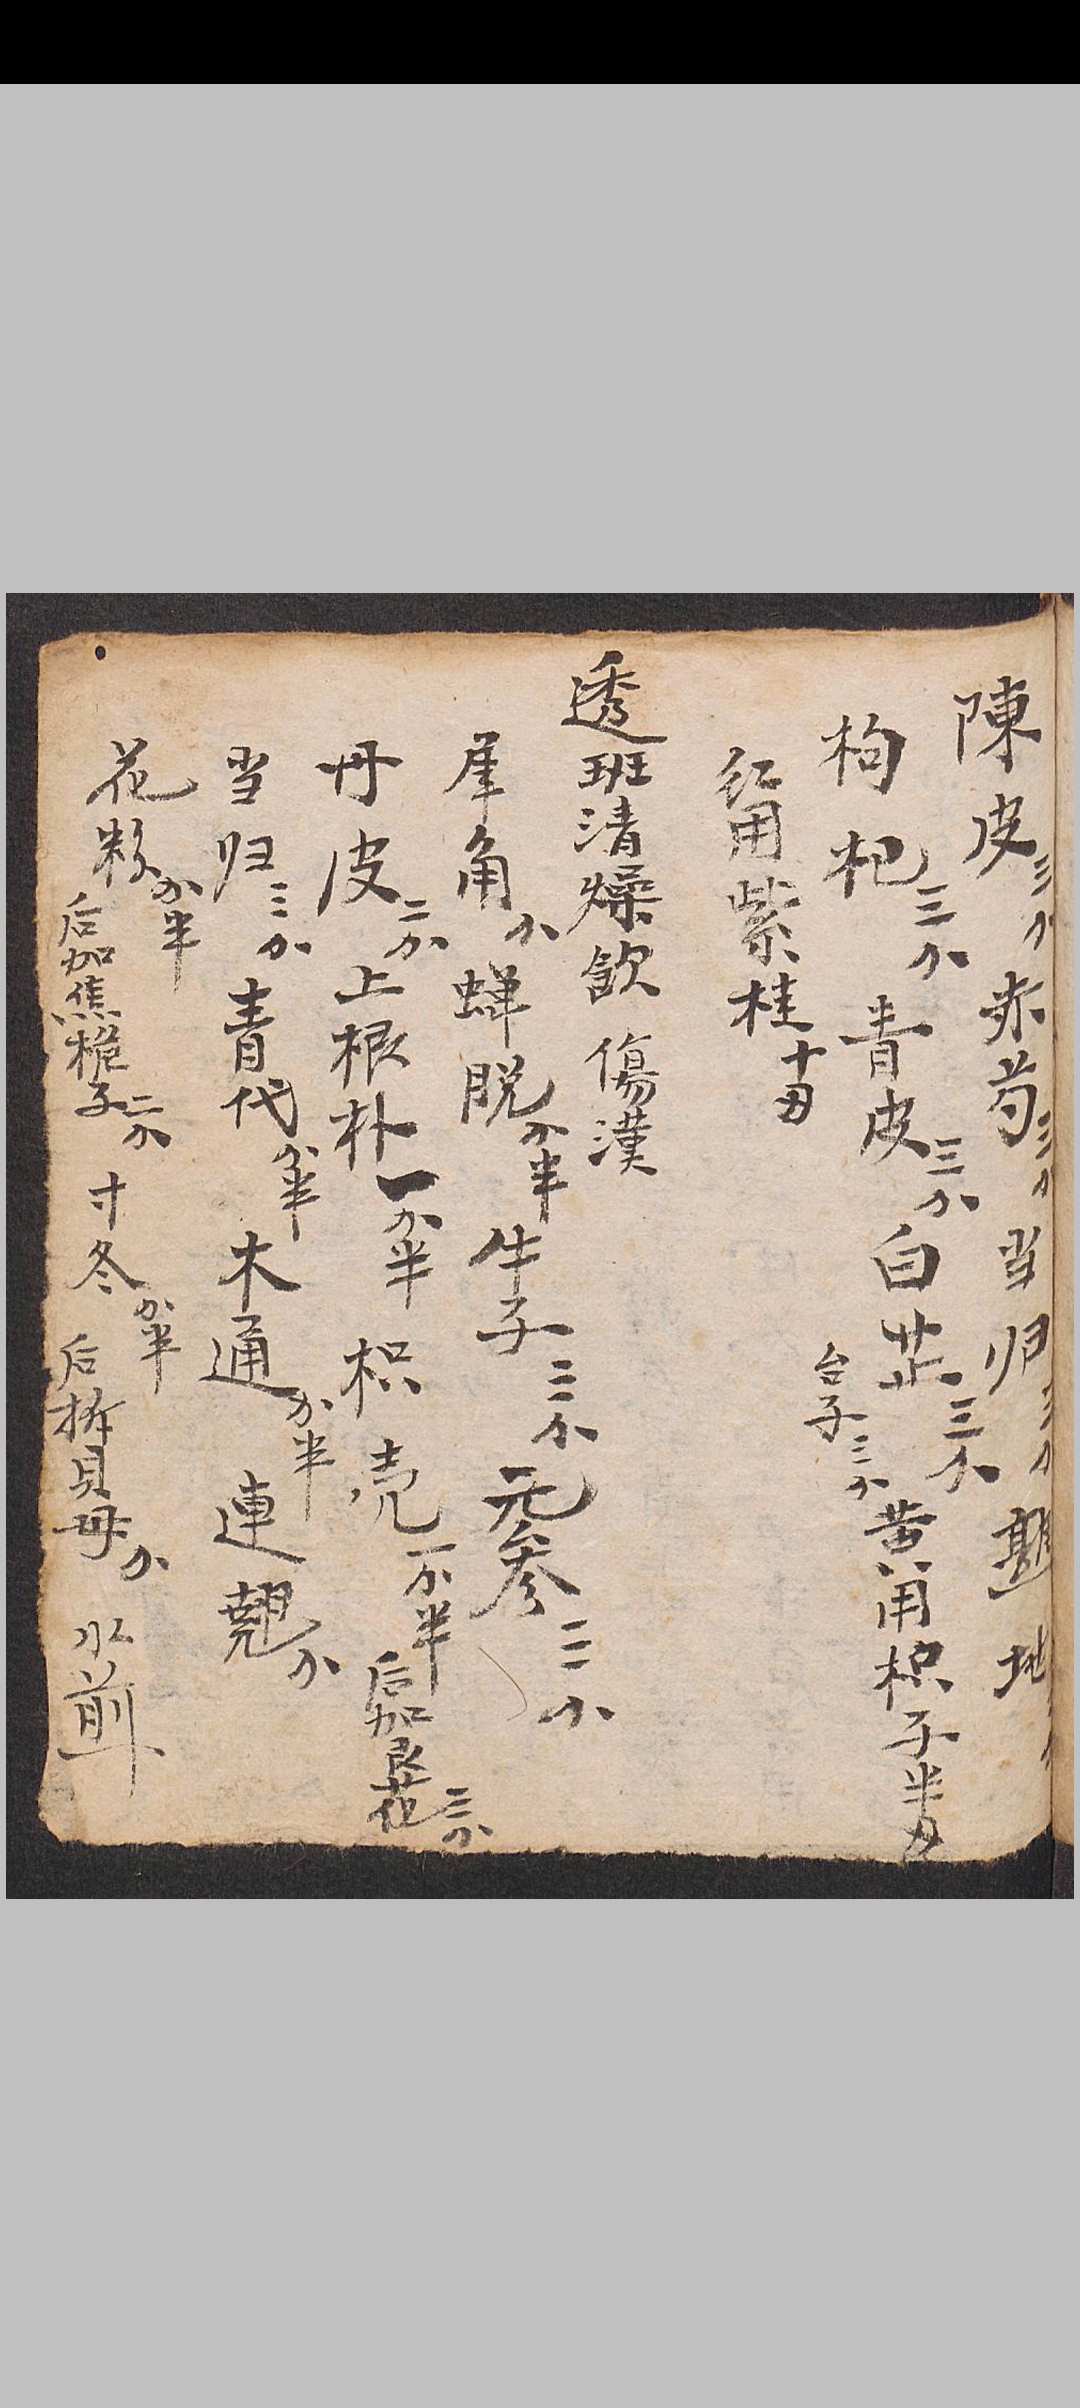 陳皮三分赤芍三分当归三分 地
枸杞三分青皮三分白芷三分黄用枳子半刃
台子三分
紅用紫桂十刃
透班清燥飲 傷漢
犀角分蝉脱分半牛子三分元参三分
丹皮二分上根朴一分半枳壳一分半后加艮花三分
当归三分青代分半木通分半連翹分
花粉分半后加焦栀子二分寸冬分半后拆貝母分水前